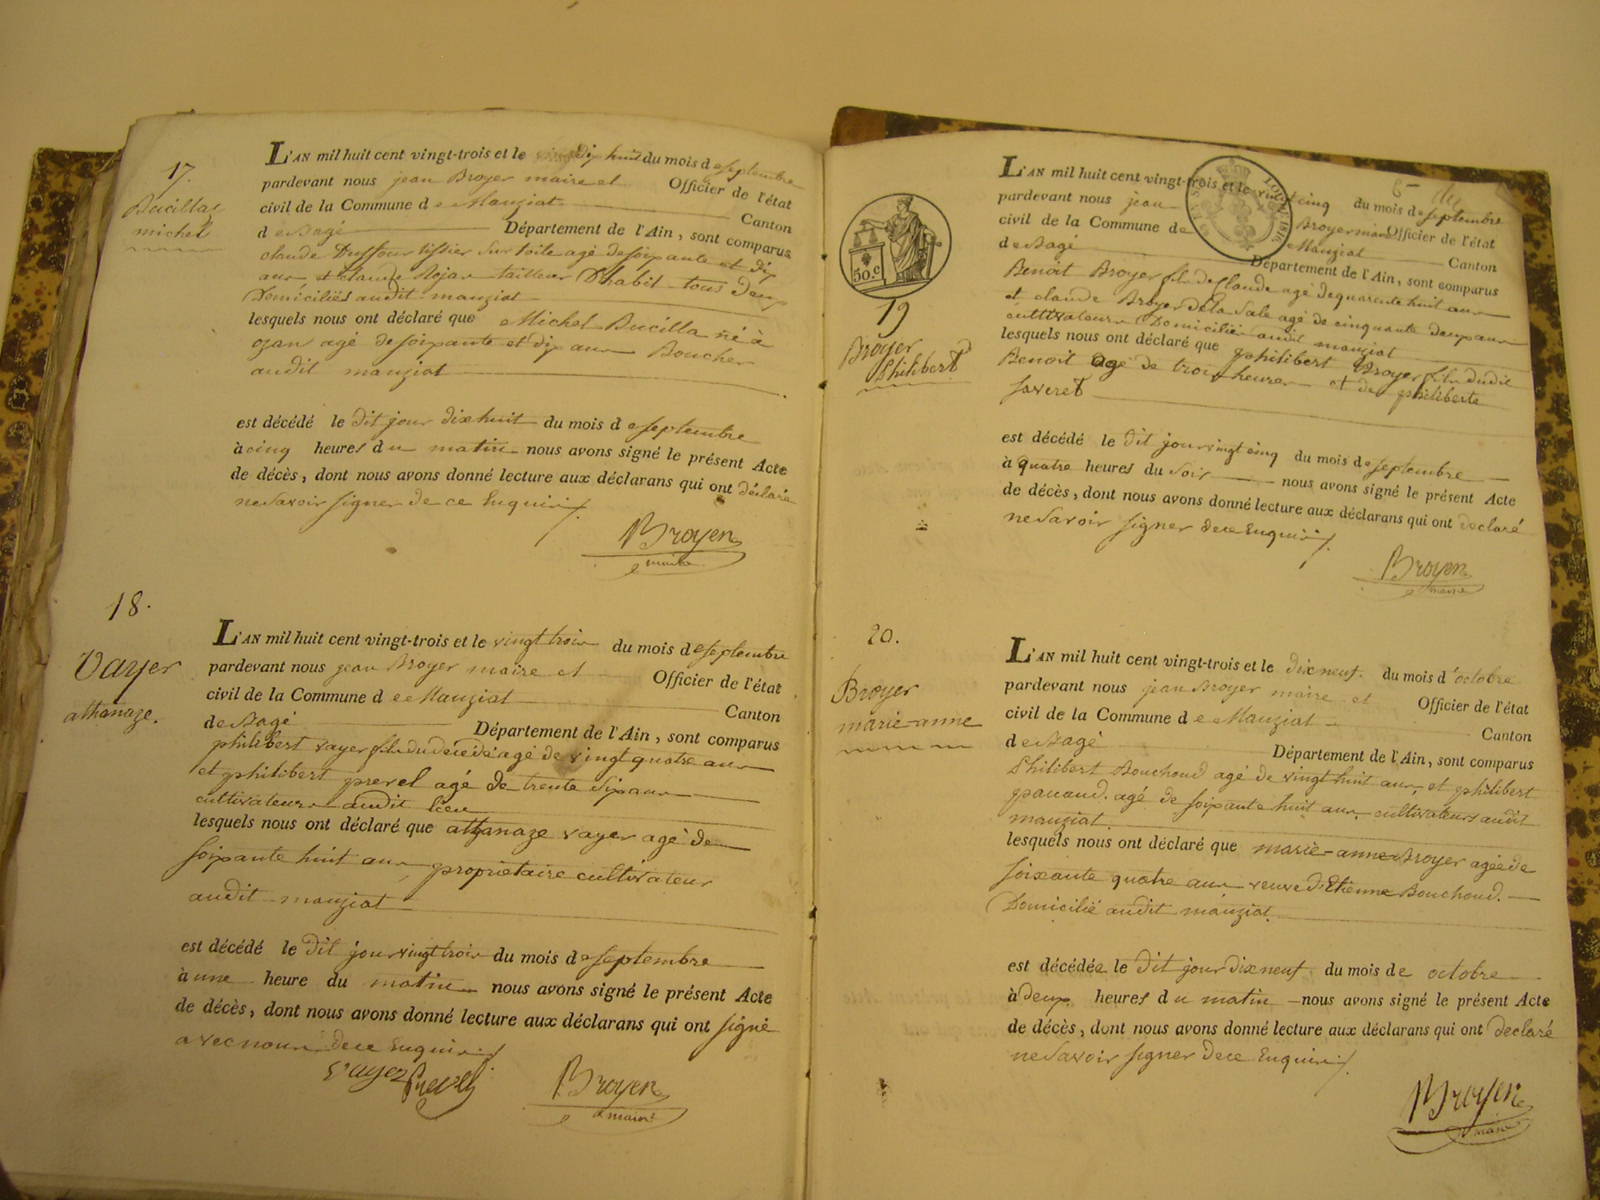 17.
Bucilla
michel
L'AN mil huit cent vingt-trois et le dix huit du mois de septembre
pardevant nous jean Broyer maire et Officier de l'état
civil de la Commune de Manziat Canton
de Bagé Département de l'Ain, sont comparus
claude Duffour tissier sur toile agé de soixante et dix
ans et claude Rojan tailleur D'habit tous deux
Domiciliés audit manziat
lesquels nous ont déclaré que Michel Bucilla né à
ozan agé de soixante et dix ans Boucher
audit manziat
est décédé le dit jour dixhuit du mois de septembre
à cinq heures du matin nous avons signé le présent Acte
de décès, dont nous avons donné lecture aux déclarans qui ont déclaré
ne savoir signer de ce Enquis
Broyer
maire
18.
Vayer
athanaze.
L'AN mil huit cent vingt-trois et le vingt trois du mois de septembre
pardevant nous jean Broyer maire et Officier de l'état
civil de la Commune de Manziat Canton
de Bagé Département de l'Ain, sont comparus
philibert vayer fils du décédé agé de vingt quatre ans
et philibert prevel agé de trente six ans
cultivateurs audit lieu
lesquels nous ont déclaré que athanaze vayer agé de
soixante huit ans, propriétaire cultivateur
audit manziat
est décédé le dit jour vingt trois du mois de septembre
à une heure du matin nous avons signé le présent Acte
de décès, dont nous avons donné lecture aux déclarans qui ont signé
avec nous de ce Enquis
Vayer Prevel
Broyer
maire
50.c
19
Broyer
Philibert
L'AN mil huit cent vingt-trois et le vingt cinq du mois de septembre
pardevant nous jean Broyer maire Officier de l'état
civil de la Commune de Manziat Canton
de Bagé Département de l'Ain, sont comparus
Benoit Broyer fils de Claude agé de quarante huit ans
et claude Broyer de la Sale agé de cinquante deux ans
cultivateurs Domiciliés audit manziat
lesquels nous ont déclaré que philibert Broyer fils dudit
Benoit agé de trois heures et de philiberte
favret
est décédé le dit jour vingt cinq du mois de septembre
à quatre heures du soir nous avons signé le présent Acte
de décès, dont nous avons donné lecture aux déclarans qui ont declaré
ne savoir signer de ce Enquis
Broyer
maire
20.
Broyer
marie-anne
L'AN mil huit cent vingt-trois et le dix neuf. du mois d'octobre
pardevant nous jean Broyer maire et Officier de l'état
civil de la Commune de Manziat Canton
de Bagé Département de l'Ain, sont comparus
Philibert Bouchoud agé de vingt huit ans, et philibert
panaud. agé de soixante huit ans. cultivateurs audit
manziat.
lesquels nous ont déclaré que marie-anne Broyer agée de
soixante quatre ans veuve d'Etienne Bouchoud.
Domicilié audit manziat.
est décédée le dit jour dix neuf du mois de octobre
à deux heures du matin nous avons signé le présent Acte
de décès, dont nous avons donné lecture aux déclarans qui ont declaré
ne savoir signer de ce Enquis
Broyer
maire